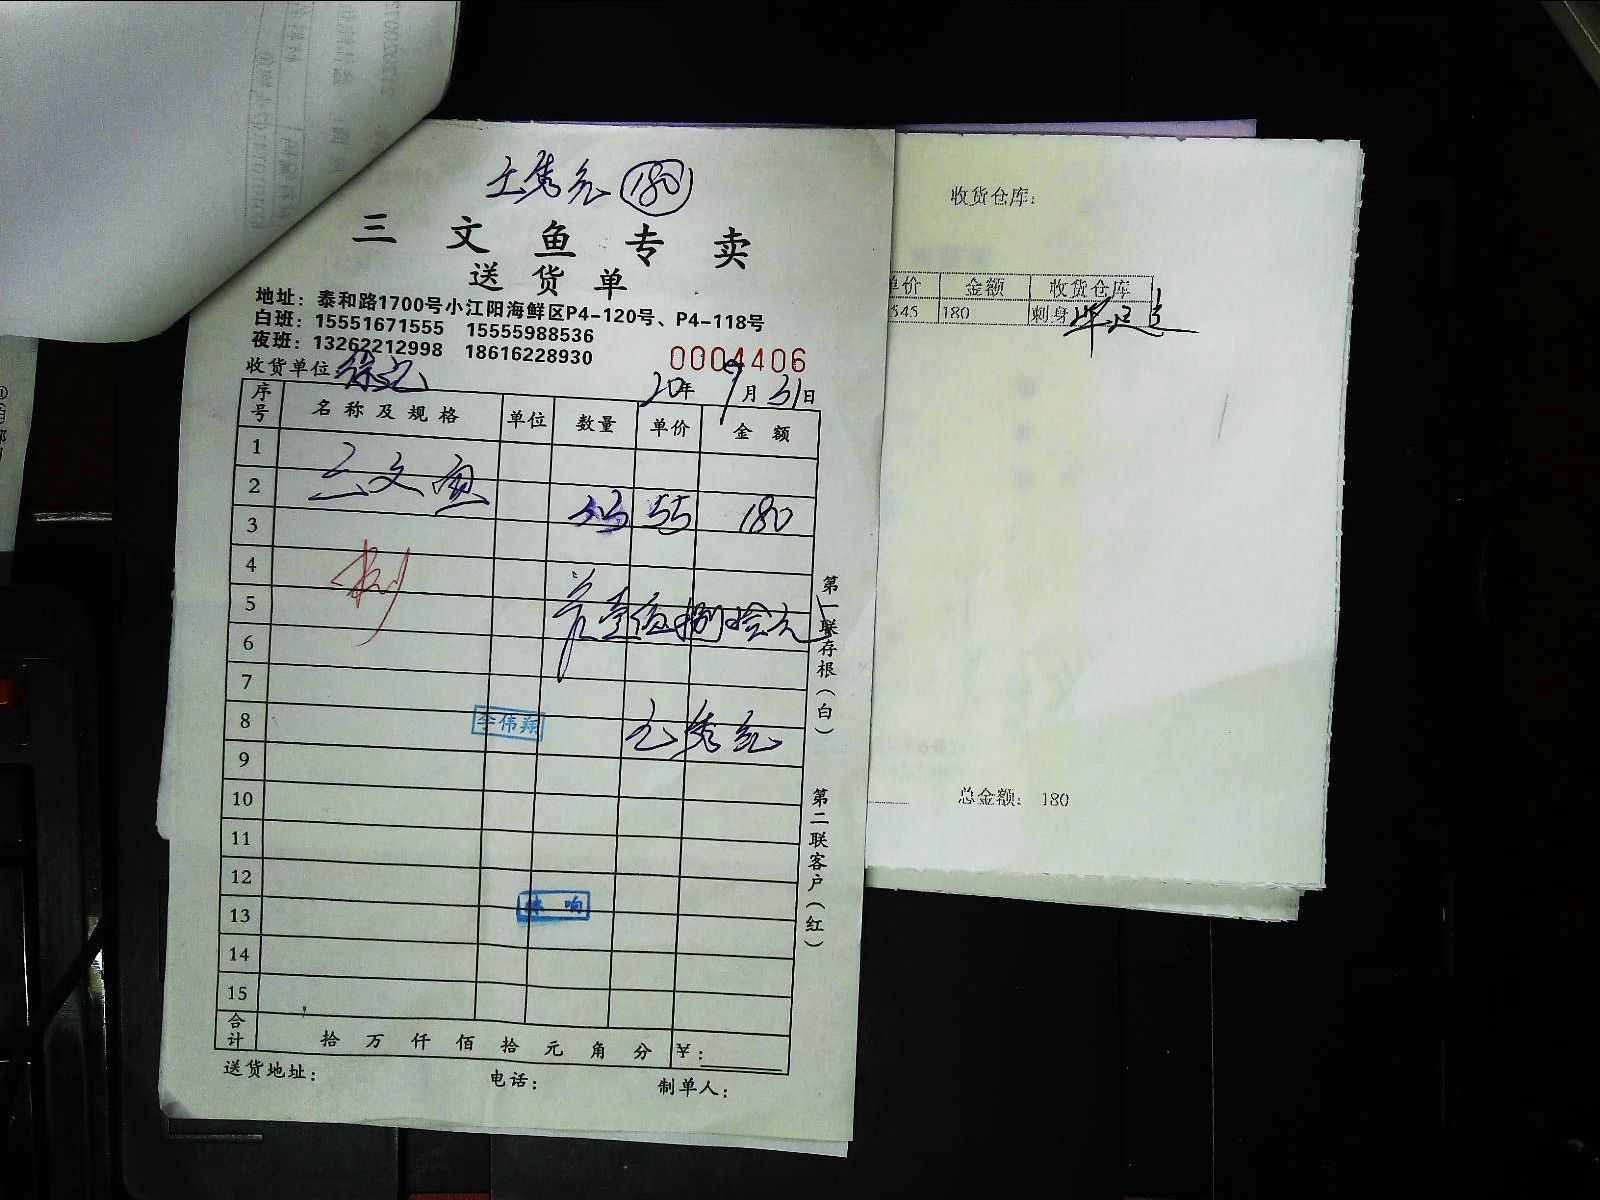 180
三文鱼专卖
送货单
地址：泰和路1700号小江阳海鲜区P4-120号、P4-118号
白班：15551671555 15555988536
夜班：13262212998 18616228930
0004406
收货单位 徐记 20年 9月31日
序号 名称及规格 单位 数量 单价 金额
1
2 三文鱼 55 180
3
4 刺
5 壹佰捌拾元
6
7
8 李伟翔
9
10
11
12
13 响
14
15
合计 拾万仟佰拾元角分 ￥：
送货地址： 电话： 制单人：
第一联存根（白）
第二联客户（红）
收货仓库：
单价 金额 收货仓库
545 180 刺身
总金额： 180